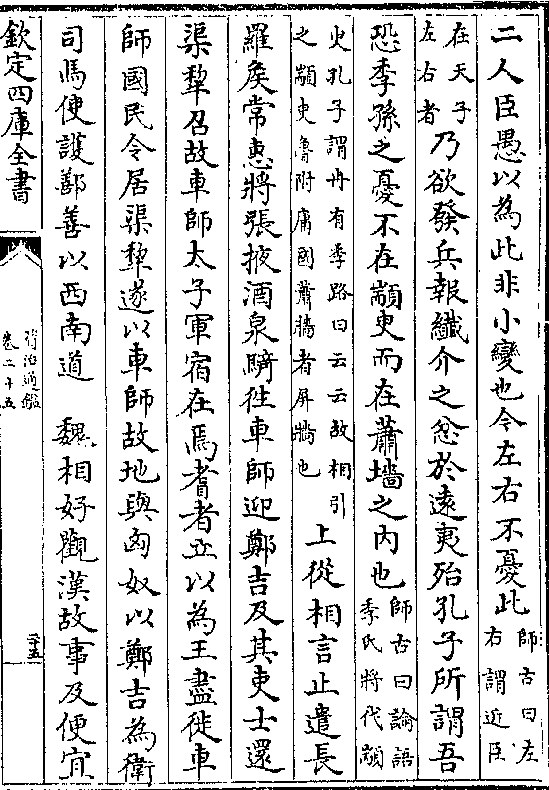 二人臣愚以為此非小變也今左右不憂此師古曰左右謂近臣
在天子左右者乃欲發兵報纖介之忿於遠夷殆孔子所謂吾
恐季孫之憂不在顓臾而在蕭墻之内也師古曰論語季氏將伐顓
臾孔子謂冉有季路曰云云故相引之顓臾魯附庸國蕭牆者屏牆也上從相言止遣長
羅矦常惠將張掖酒泉騎徃車師迎鄭吉及其吏士還
渠犂召故車師太子軍宿在焉耆者立以為王盡徙車
師國民令居渠犂遂以車師故地與匈奴以鄭吉為衛
司馬使護鄯善以西南道　魏相好觀漢故事及便宜
欽定四庫全書
資治通鑑
卷二十五
二十五